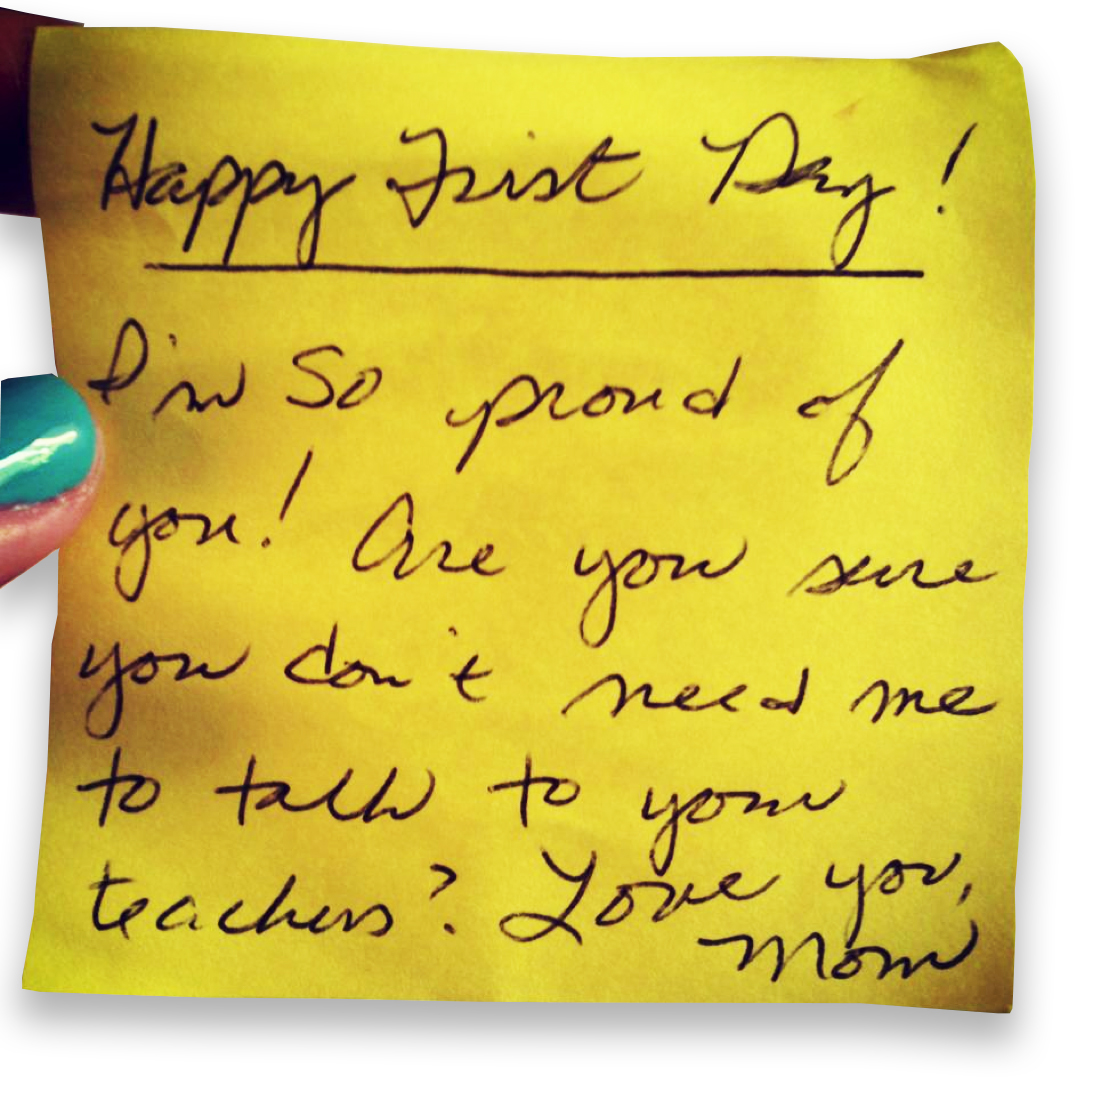 Happy First Day!
I'm So proud of
you! Are you sure
you don't need me
to talk to your
teachers? Love you,
Mom